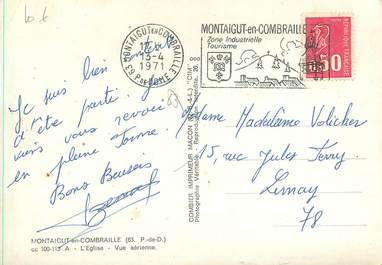 10 €
MONTAIGUT EN COMBRAILLE
13-4
1971
P. DE DOME
63
MONTAIGUT-en-COMBRAILLE
Zone Industrielle
Tourisme
0,50
Je suis bien
d'être partie
viens vous revoir
en pleine forme.
Bons Baisers
COMBIER IMPRIMEUR MACON (S.-&-L.) "CIM"
Photographie Véritable - Reproduction Interdite
Madame Madeleine Volicher
15, rue Jules Ferry
78
MONTAIGUT-en-COMBRAILLE (63. P.-de-D.)
cc 100-113 A - L'Eglise - Vue aérienne.